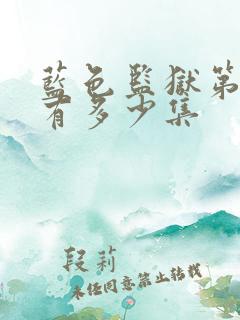 藍色監獄第
有多少集
段莉
未经同意禁止转载